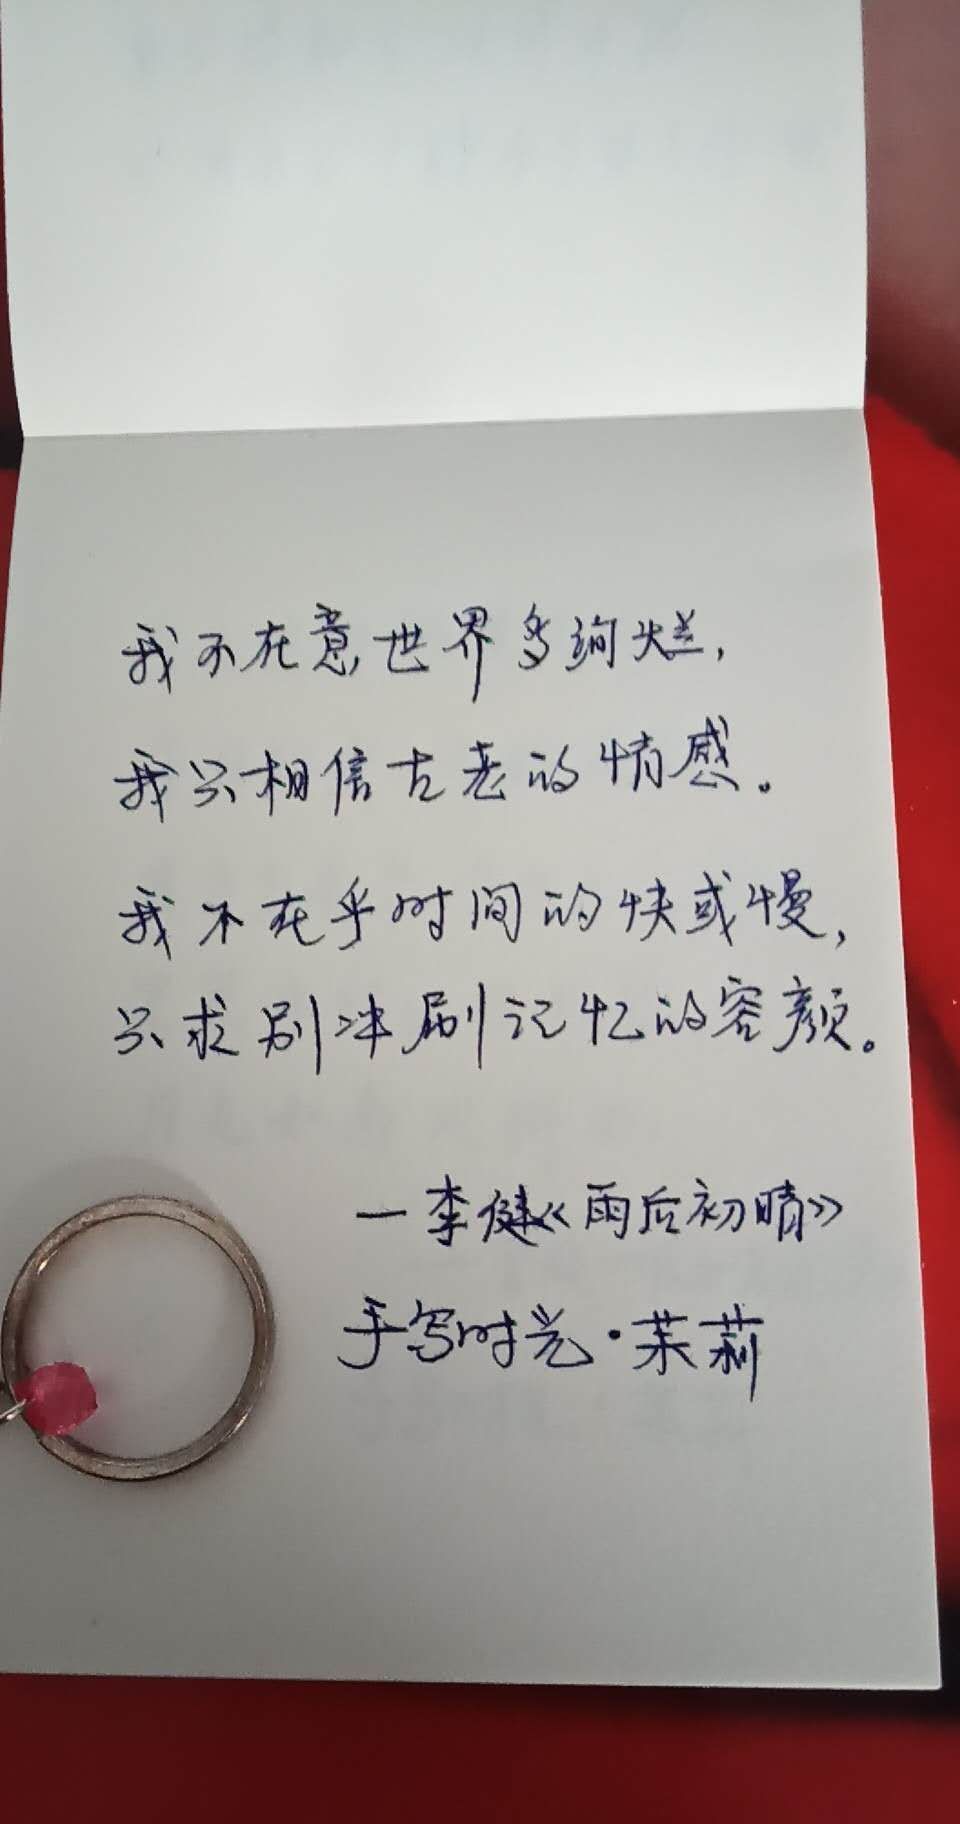 我不在意世界多绚烂,
我只相信古老的情感。
我不在乎时间的快或慢,
只求别冲刷记忆的容颜。
—李健《雨后初晴》
手写时光·茉莉